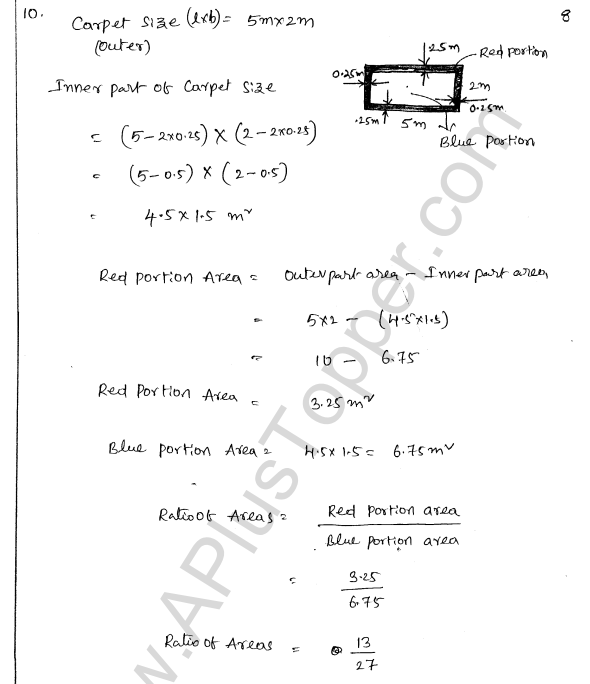 10.
8
Carpet Size (l×b) = 5m×2m
(outer)
.25m
Red Portion
0.25m
2m
0.25m
.25m
5m
Blue Portion
Inner part of Carpet Size
= (5-2×0.25) × (2-2×0.25)
= (5-0.5) × (2-0.5)
= 4.5×1.5 m²
Red Portion Area = Outer part area - Inner part area
= 5×2 - (4.5×1.5)
= 10 - 6.75
Red Portion Area = 3.25 m²
Blue portion Area = 4.5×1.5 = 6.75 m²
Ratio of Areas = Red Portion area
Blue portion area
= 3.25
6.75
Ratio of Areas = 13
27
w.APlusTopper.com